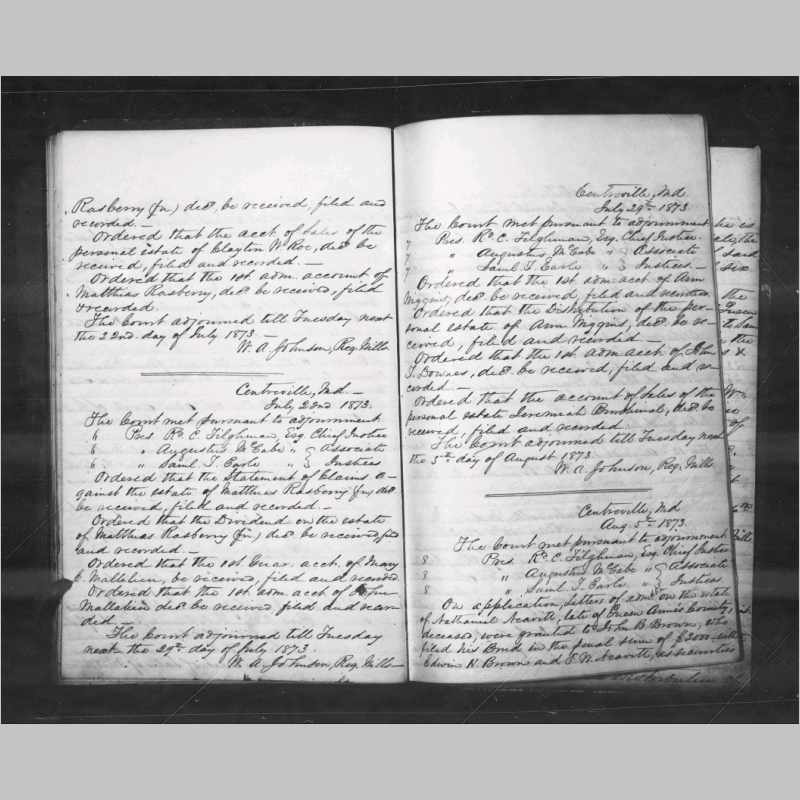 Rasberry (Jn) decd, be received, filed and
recorded. —
Ordered that the acct of Sales of the
personal estate of Clayton W. Roe, decd be
received, filed and recorded. —
Ordered that the 1st. adm. account of
Matthias Rasberry, decd be received, filed
& recorded
The Court adjourned till Tuesday next
the 22nd. day of July 1873. —
W. A. Johnson, Reg. Wills
Centreville, Md. —
July 22nd 1873.
The Court met pursuant to adjournment
6 Pres. Rd. C. Tilghman, Esq. Chief Justice
6 " Augustus McCabe " } Associate
6 " Saml. T. Earle " } Justices
Ordered that the Statement of Claims a-
gainst the estate of Matthias Rasberry (Jn) decd
be received, filed and recorded. —
Ordered that the Dividend on the estate
of Matthias Rasberry (Jn) decd be received, filed
and recorded. —
Ordered that the 1st Guar. acct. of Mary
C. Mallahen, be received, filed and recorded
Ordered that the 1st. adm. acct. of
Mallahen decd be received filed and recor-
ded —
The Court adjourned till Tuesday
next the 29th. day of July 1873.
W. A. Johnson, Reg. Wills —
Centreville, Md
July 29th. 1873.
The Court met pursuant to adjournment
7 Pres. Rd. C. Tilghman, Esq. Chief Justice
7 " Augustus McCabe " } Associate
7 " Saml T. Earle " } Justices —
Ordered that the 1st adm acct of Ann
Wiggins, decd be received filed and recorded
Ordered that the Distribution of the per-
sonal estate of Ann Wiggins, decd be re-
ceived, filed and recorded —
Ordered that the 1st adm acct. of John
T. Downes, decd be received, filed and re-
corded —
Ordered that the account of Sales of the
personal estate Jeremiah decd be
received, filed and recorded
The Court adjourned till Tuesday next
the 5th day of August 1873.
W. A. Johnson, Reg. Wills
Centreville, Md
Aug. 5th. 1873.
The Court met pursuant to adjournment
8 Pres. Rd. C. Tilghman, Esq. Chief Justice
8 " Augustus McCabe " } Associate
8 " Saml T. Earle " } Justices
On application, Letters of adm. on the estate
of Nathaniel Leavitt, late of Queen Anne's County,
deceased, were granted to John B. Brown, who
filed his Bond in the penal sum of $2000. with
Edwin H. Brown and Leavitt, as securities